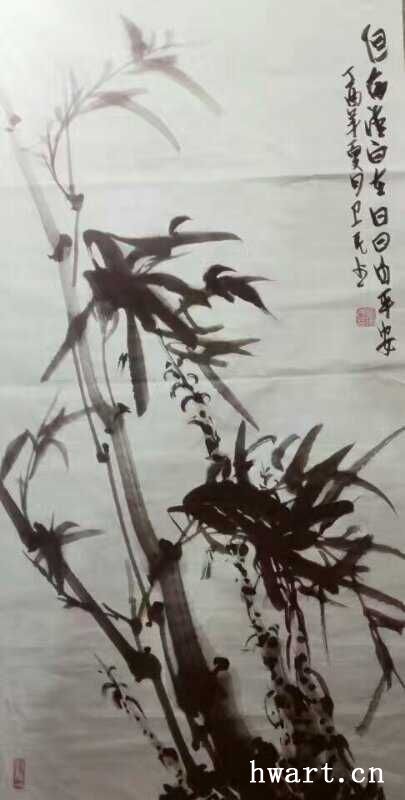 但有清白在日日由平安
丁酉年夏月卫民書
hwart.cn